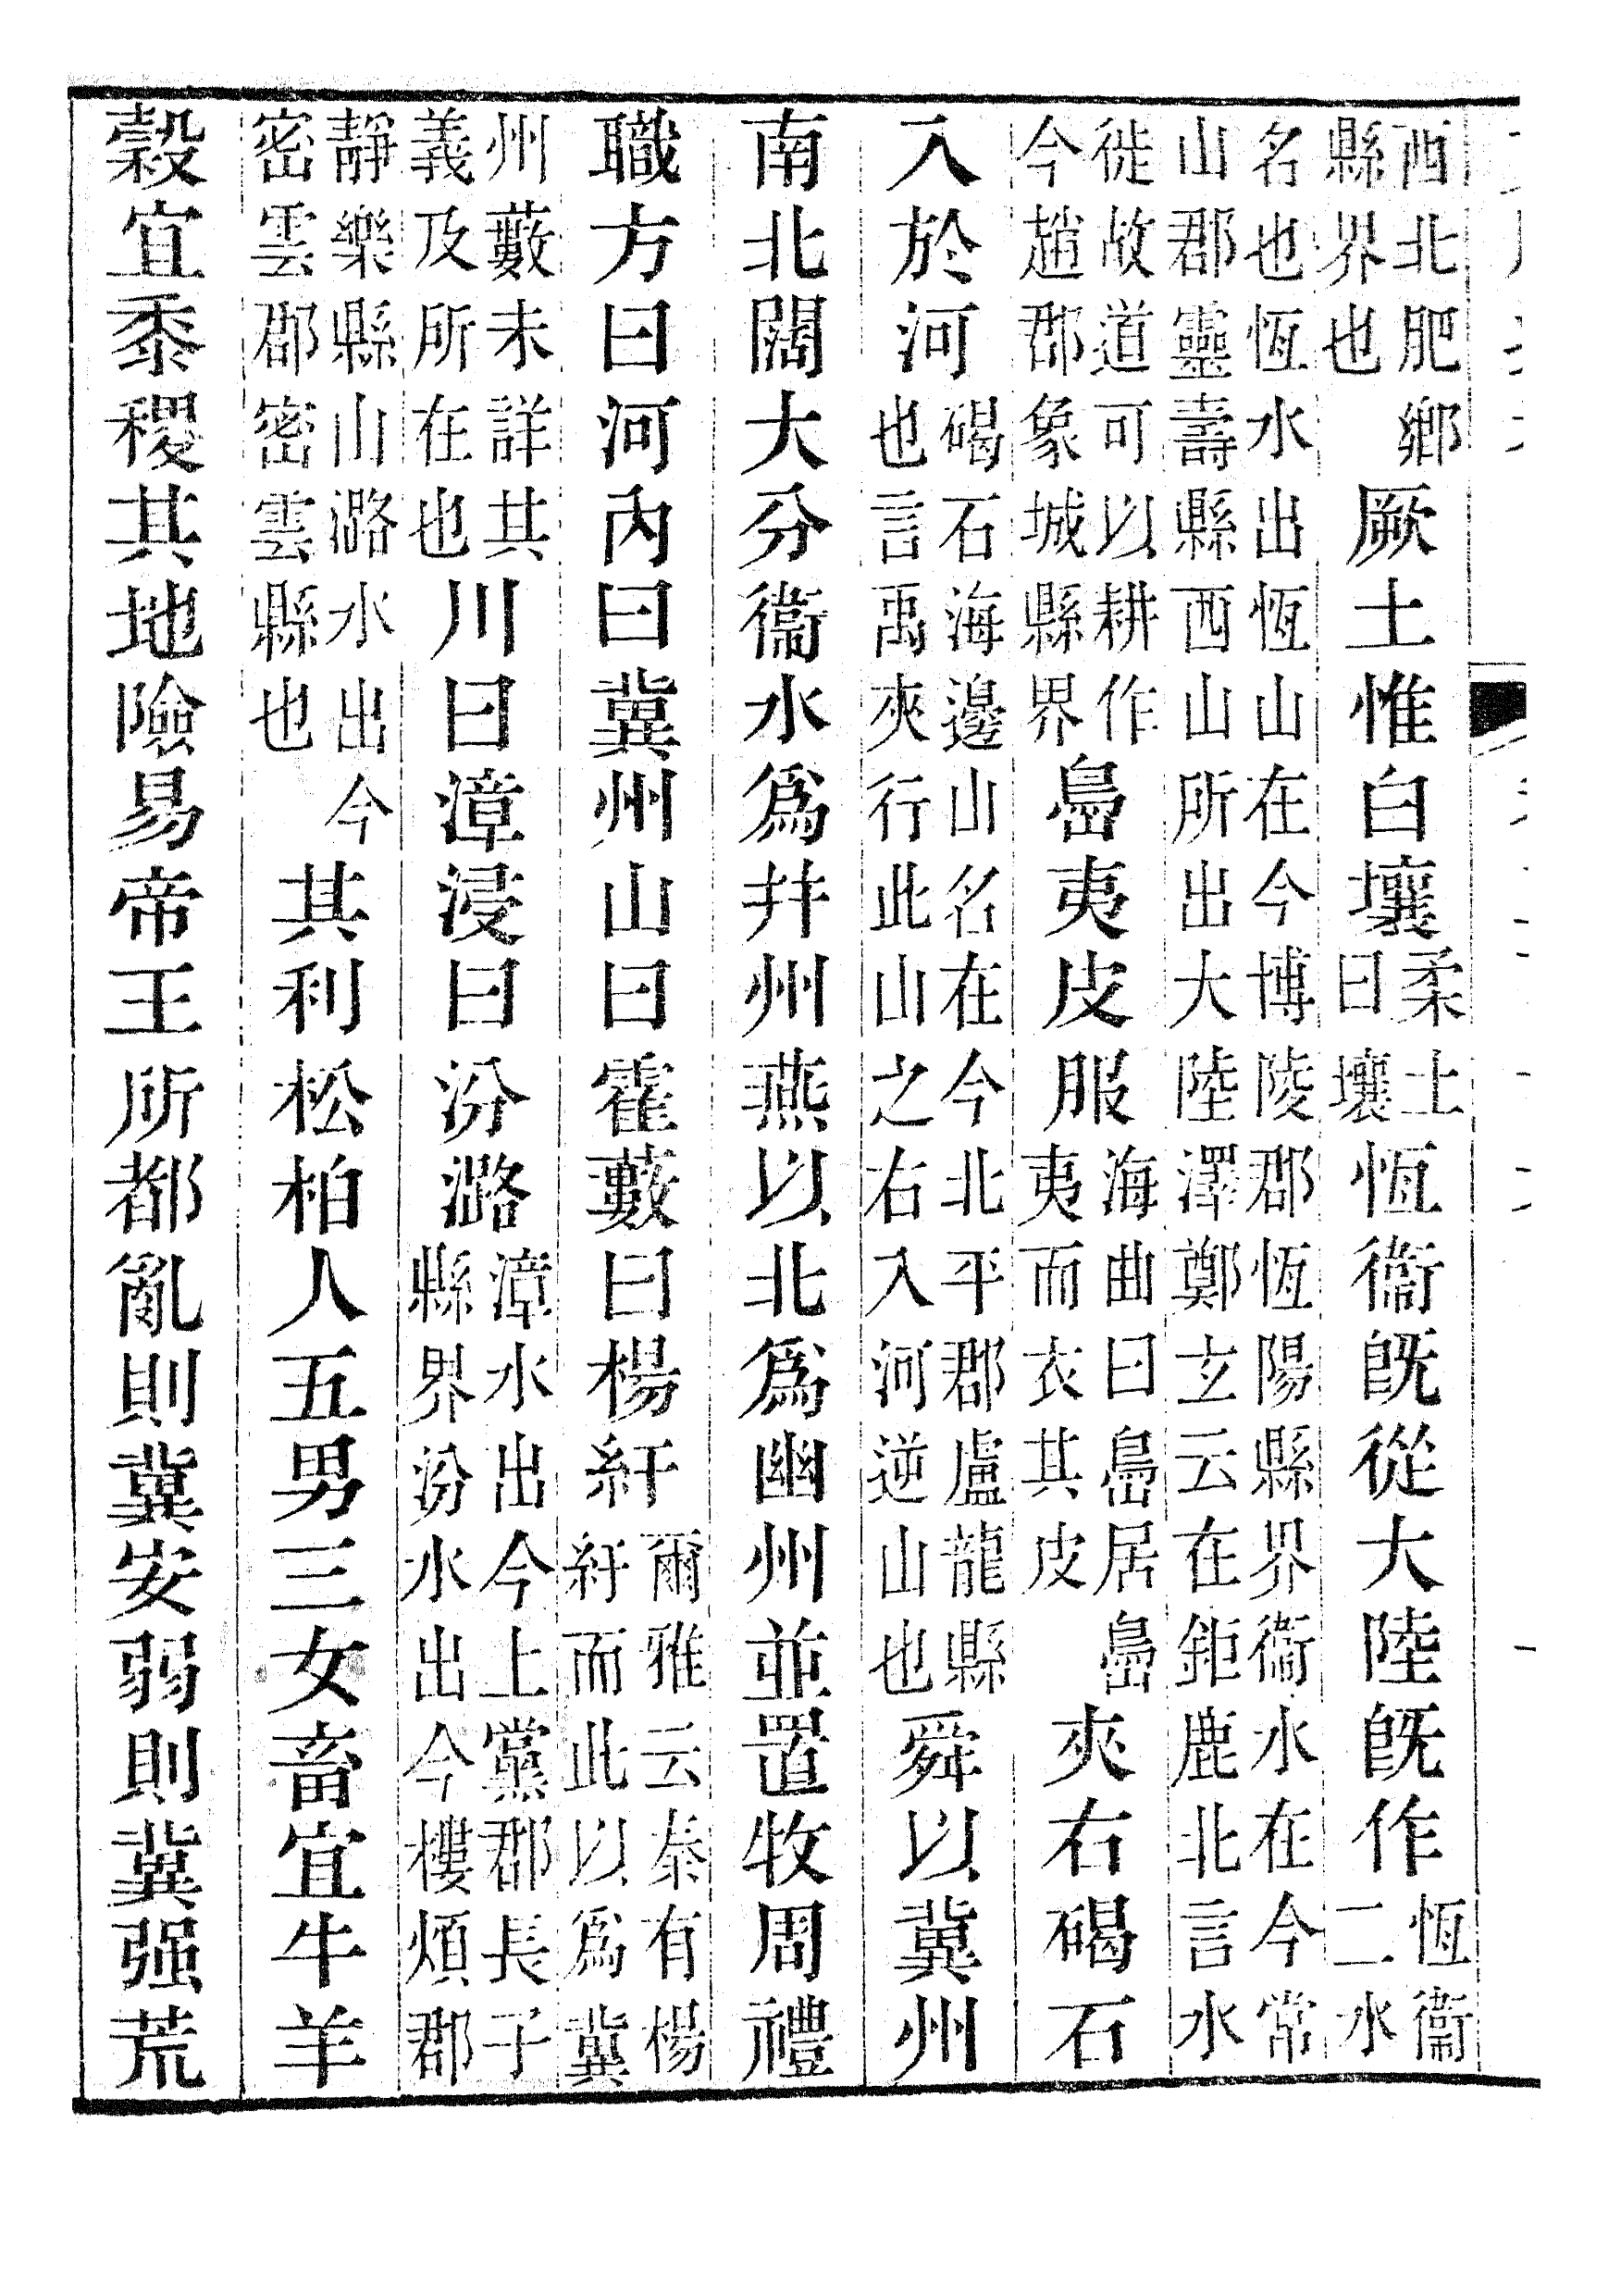 西北肥鄉縣界也厥土惟白壤柔土曰壤恆衞旣從大陸旣作恆衞二水
名也恆水出恆山在今博陵郡恆陽縣界衞水在今常山郡靈壽縣西山所出大陸澤鄭玄云在鉅鹿北言水
徙故道可以耕作今趙郡象城縣界㠀夷皮服海曲曰㠀居㠀夷而衣其皮夾右碣石
入於河碣石海邊山名在今北平郡盧龍縣也言禹夾行此山之右入河逆山也舜以冀州
南北闊大分衞水爲幷州燕以北爲幽州並置牧周禮
職方曰河內曰冀州山曰霍藪曰楊紆爾雅云秦有楊紆而此以爲冀
州藪未詳其義及所在也川曰漳浸曰汾潞漳水出今上黨郡長子縣界汾水出今樓煩郡
靜樂縣山潞水出今密雲郡密雲縣也其利松柏人五男三女畜宜牛羊
穀宜黍稷其地險易帝王所都亂則冀安弱則冀强荒